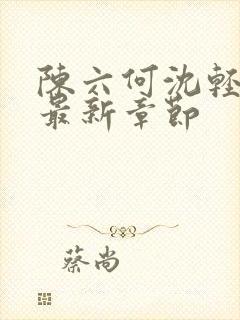 陳六何沈輕
最新章節
蔡尚